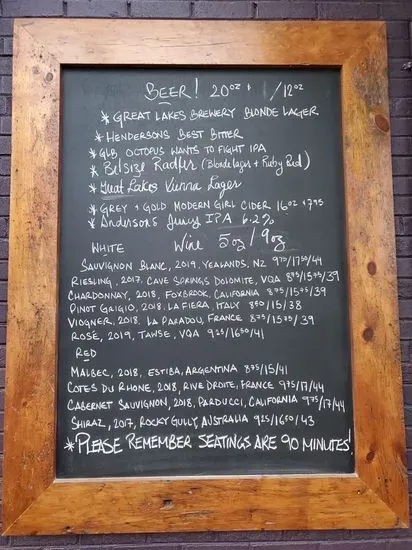 BEER! 20oz $ /12oz
* GREAT LAKES BREWERY BLONDE LAGER
* HENDERSONS BEST BITTER
* GLB OCTOPUS WANTS TO FIGHT IPA
* Belsize Radler (Blonde lager + Ruby Red)
* Great Lakes Vienna Lager
* GREY + GOLD MODERN GIRL CIDER 16oz $7.95
* Anderson's Juicy IPA 6.2%
WHITE Wine 5oz/9oz
SAUVIGNON BLANC, 2019, YEALANDS, NZ 9.75/17.50/44
RIESLING, 2017, CAVE SPRINGS DOLOMITE, VQA 8.75/15.75/39
CHARDONNAY, 2018, FOXBROOK, CALIFORNIA 8.75/15.75/39
PINOT GRIGIO, 2018, LA FIERA, ITALY 8.50/15/38
VIOGNER, 2018, LA PARADOU, FRANCE 8.75/15.75/39
ROSÉ, 2019, TAWSE, VQA 9.25/16.50/41
RED
MALBEC, 2018, ESTIBA, ARGENTINA 8.75/15/41
COTES DU RHONE, 2018, RIVE DROITE, FRANCE 9.75/17/44
CABERNET SAUVIGNON, 2018, PARDUCCI, CALIFORNIA 9.75/17/44
SHIRAZ, 2017, ROCKY GULLY, AUSTRALIA 9.25/16.50/43
* PLEASE REMEMBER SEATINGS ARE 90 MINUTES!